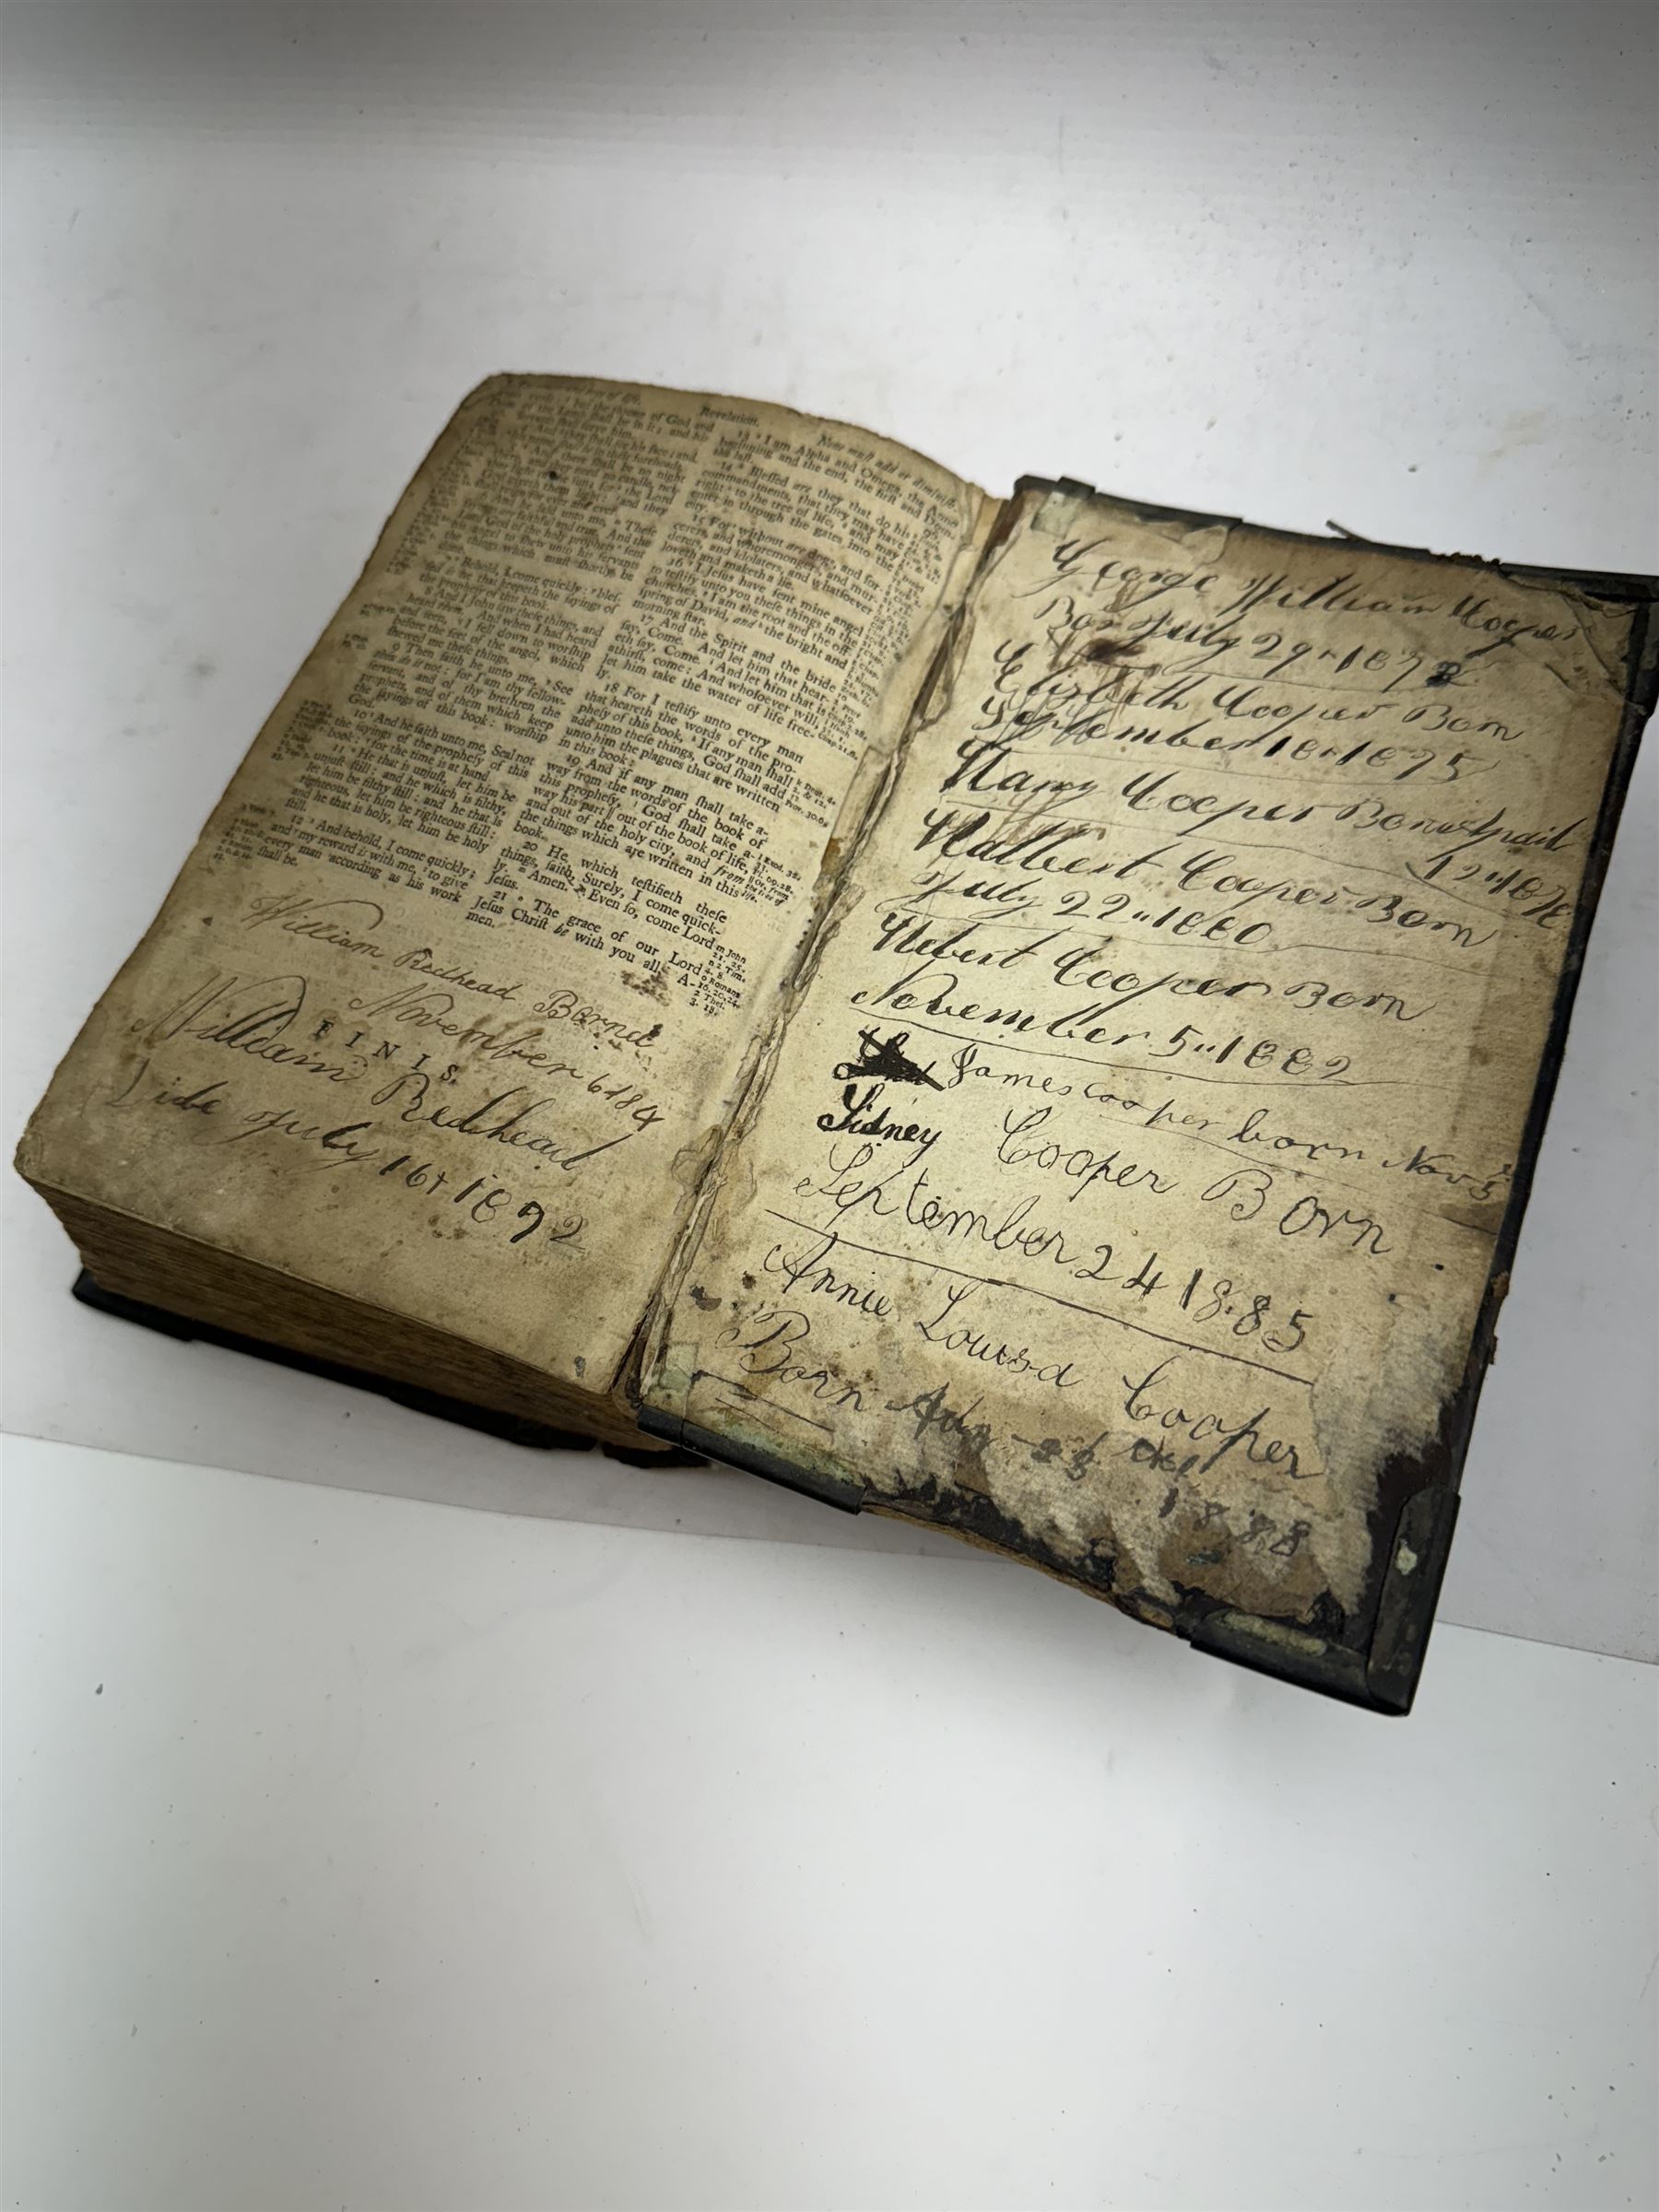 Revelation.
Now must add or diminish.
of the Lamb shall be in it; and his
servants shall serve him.
4 And they shall see his face; and
5 And there shall be no night
there; and they need no candle, nei-
ther light of the sun; for the Lord
God giveth them light: and they
shall reign for ever and ever.
6 And he said unto me, Theſe
ſayings are faithful and true. And the
Lord God of the holy prophets ſent
his angel to ſhew unto his ſervants
the things which muſt ſhortly be
done.
7 Behold, I come quickly: bleſ-
ſed is he that keepeth the ſayings of
the prophecy of this book.
8 And I John ſaw theſe things, and
heard them. And when I had heard
and ſeen, I fell down to worſhip
before the feet of the angel, which
ſhewed me theſe things.
9 Then ſaith he unto me, See
thou do it not: for I am thy fellow-
ſervant, and of thy brethren the
prophets, and of them which keep
the ſayings of this book: worſhip
God.
10 And he ſaith unto me, Seal not
the ſayings of the propheſy of this
book: for the time is at hand.
11 He that is unjuſt, let him be
unjuſt ſtill: and he which is filthy,
let him be filthy ſtill: and he that is
righteous, let him be righteous ſtill:
and he that is holy, let him be holy
ſtill.
12 And behold, I come quickly;
and my reward is with me, to give
every man according as his work
ſhall be.
13 I am Alpha and Omega, the
beginning and the end, the firſt and
the laſt.
14 Bleſſed are they that do his
commandments, that they may have
right to the tree of life, and may
enter in through the gates into the
city.
15 For without are dogs, and ſor-
cerers, and whoremongers, and mur-
derers, and idolaters, and whatſoever
loveth and maketh a lie.
16 I Jeſus have ſent mine angel
to teſtify unto you theſe things in the
churches. I am the root and the off-
ſpring of David, and the bright and
morning ſtar.
17 And the Spirit and the bride
ſay, Come. And let him that hear-
eth ſay, Come. And let him that is
athirſt come: And whoſoever will,
let him take the water of life free-
ly.
18 For I teſtify unto every man
that heareth the words of the pro-
pheſy of this book, If any man ſhall
add unto theſe things, God ſhall add
unto him the plagues that are written
in this book:
19 And if any man ſhall take a-
way from the words of the book of
this propheſy, God ſhall take a-
way his part || out of the book of life,
and out of the holy city, and from
the things which are written in this
book.
20 He which teſtifieth theſe
things, ſaith, Surely, I come quick-
ly. Amen. Even ſo, come Lord
Jeſus.
21 The grace of our Lord
Jeſus Chriſt be with you all. A-
men.
William Redhead Bornd
November 6 184
FINIS.
William Redhead
Dide July 16+ 1872
George William Cooper
Bor July 29 1872
Elizbeth Cooper Born
September 18 1875
Harry Cooper Born Apail
12 1878
Halbert Cooper Born
July 22 " 1880
Hebert Cooper Born
November 5 " 1882
James Cooper born Nov 5
Sidney Cooper Born
September 24 1885
Annie Louisa Cooper
Born
1888